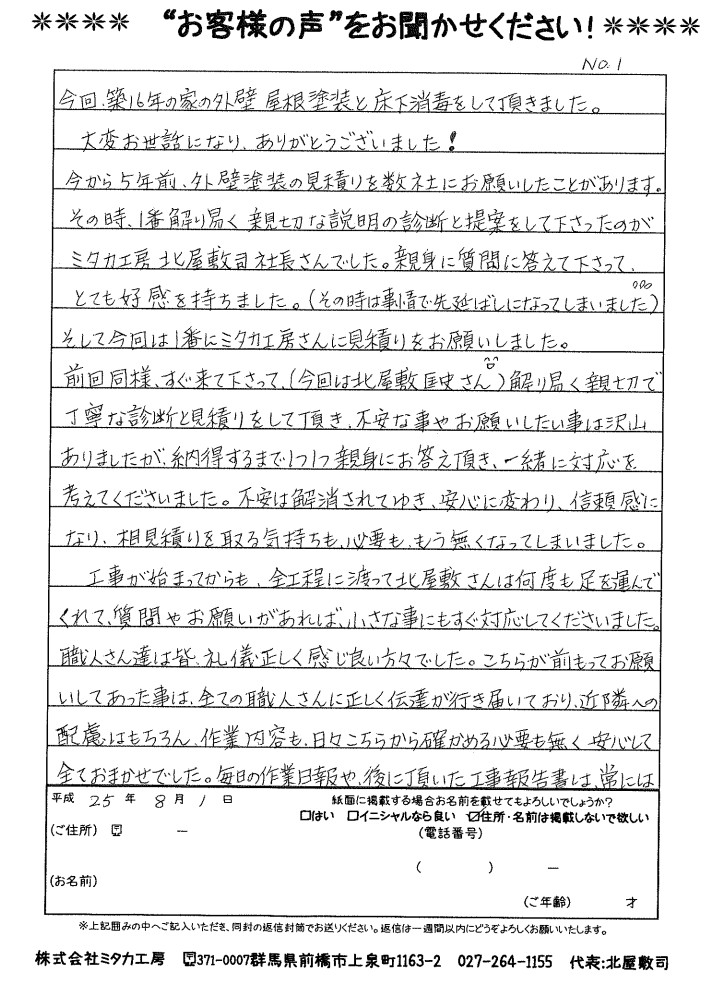 ＊＊＊＊ “お客様の声”をお聞かせください！＊＊＊＊
No.1
今回、築16年の家の外壁 屋根塗装と床下消毒をして頂きました。
大変お世話になり、ありがとうございました！
今から5年前、外壁塗装の見積りを数社にお願いしたことがあります。
その時、1番解り易く 親切な説明の診断と提案をして下さったのが
ミタカ工房 北屋敷司社長さんでした。親身に質問に答えて下さって、
とても好感を持ちました。(その時は事情で先延ばしになってしまいました)
そして今回は1番にミタカ工房さんに見積りをお願いしました。
前回同様、すぐ来て下さって、(今回は北屋敷匡史さん)解り易く親切で
丁寧な診断と見積りをして頂き、不安な事やお願いしたい事は沢山
ありましたが、納得するまで1つ1つ親身にお答え頂き、一緒に対応を
考えてくださいました。不安は解消されてゆき、安心に変わり、信頼感に
なり、相見積りを取る気持ちも、必要も、もう無くなってしまいました。
工事が始まってからも、全工程に渡って北屋敷さんは何度も足を運んで
くれて、質問やお願いがあれば、小さな事にもすぐ対応してくださいました。
職人さん達は皆、礼儀正しく感じ良い方々でした。こちらが前もってお願
いしてあった事は、全ての職人さんに正しく伝達が行き届いており、近隣への
配慮はもちろん、作業内容も、日々こちらから確かめる必要も無く 安心して
全ておまかせでした。毎日の作業日報や、後に頂いた工事報告書は、常には
平成 25 年 8 月 1 日
紙面に掲載する場合お名前を載せてもよろしいでしょうか？
□はい □イニシャルなら良い ☑住所・名前は掲載しないで欲しい
(ご住所) 〒 ー
(電話番号)
( ) ー
(お名前)
(ご年齢) 才
※上記囲みの中へご記入いただき、同封の返信封筒でお送りください。返信は一週間以内にどうぞよろしくお願いいたします。
株式会社ミタカ工房 〒371-0007群馬県前橋市上泉町1163-2 027-264-1155 代表：北屋敷司